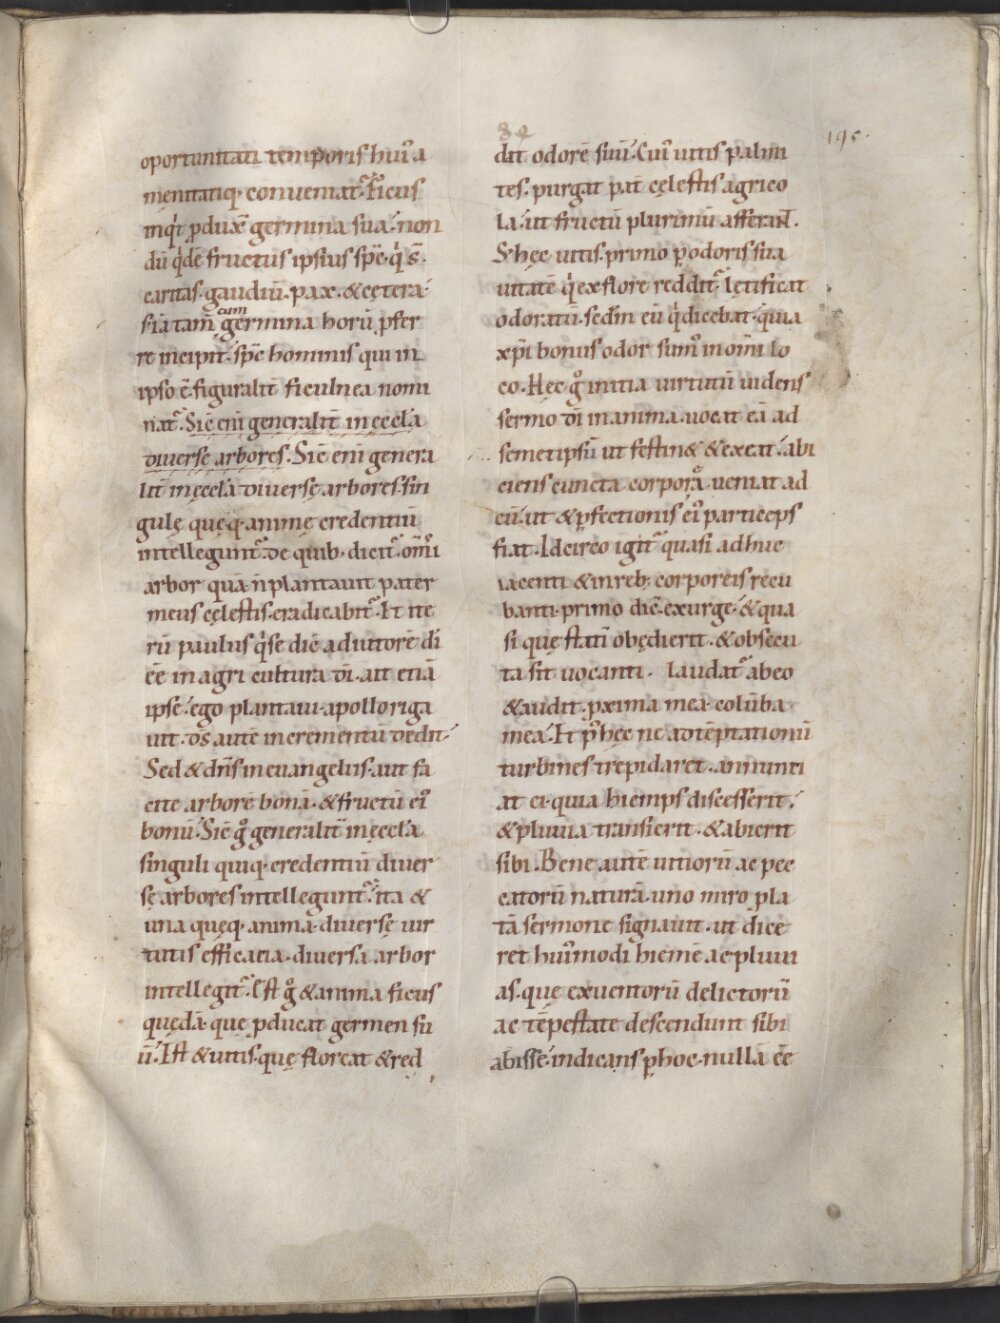 84
195.
oportunitati temporis huı᷒ a
męnitatiq· conveniat᷒. Ficus
inqͥt ꝓdux̄ germina sua; non
dū qͥdē fructus ipsius sp̄c· qͥ s̄·
caritas· gaudiū· pax· & cętera;
cum
sīa tam̄ germina horū ꝓfer
re incipit· sp̄c hominis qui in
ipso ē· figuralit̄ ficulnea nomi
nat᷒. Sic eni generalit̄ in ęccla
diversę arbores. Sic eni genera
lit̄ in ęccla diversę arbores· sin
gulę quęq· animę credentiū
intellegunt᷒· de quib· dicit᷒· om̄i
arbor quā n̄ plantavit pater
meus cęlestis· eradicabit᷒. Et ite
rū paulus qͥ se dic̄ adiutorē di
ēē in agri cultura dī· ait etiā
ipse; ego plantavi· apollo riga
vit· d̄s autē incrementū dedit;
Sed & dn̄s in evangeliis· aut fa
cite arborē bonā· & fructū ei᷒
bonū. Sic gͦ generalit̄ in ęccla
singuli quiq· credentiū diver
sę arbores intellegunt᷒; ita &
una quęq· anima· diversę vir
tutis efficatia· diversa arbor
intellegit᷒. Est gͦ & anima ficus
quędā· quę ꝓducat germen su
ū. Est & vitis· quę floreat & red
dit odorē suū. Cui᷒ vitis palmi
tes· purgat pat̄ cęlestis agrico
la; ut fructū plurimū afferant.
S· hęc vitis· primo ꝓ odoris sua
vitatē qͥ ex flore reddit᷒ lętificat
odoratū· scdm eū qͥ dicebat· quia
xp̄i bonus odor sum᷒ in om̄i lo
co. Hęc gͦ initia virtutū videns
sermo dī in anima· vocat eā ad
semetipsū ut festin& & exeat; abi
ciens cuncta corporꝗa· veniat ad
eū· ut & ꝑfectionis ei᷒ particeps
fiat. Idcirco igit᷒ quasi adhuc
iacenti & in reb; corporeis recu
banti· primo dic̄ exurge; & qua
si quę stati obędierit· & obsecu
ta sit vocanti· laudat᷒ ab eo
& audit· ꝓxima mea· colūba
mea; Et pͦ hęc ne ad tēptationū
turbines trepidaret· annunti
at ei· quia hiemps discesserit;
& pluvia transierit· & abierit
sibi. Bene autē vitiorū ac pec
catorū naturā· uno miro pla
tā sermone signavit· ut dice
ret hui᷒modi hiemē ac pluvi
as· quę ex ventorū delictorū
ac tēpestate descendunt sibi
abisse; indicans ꝑ hoc· nullā ēē